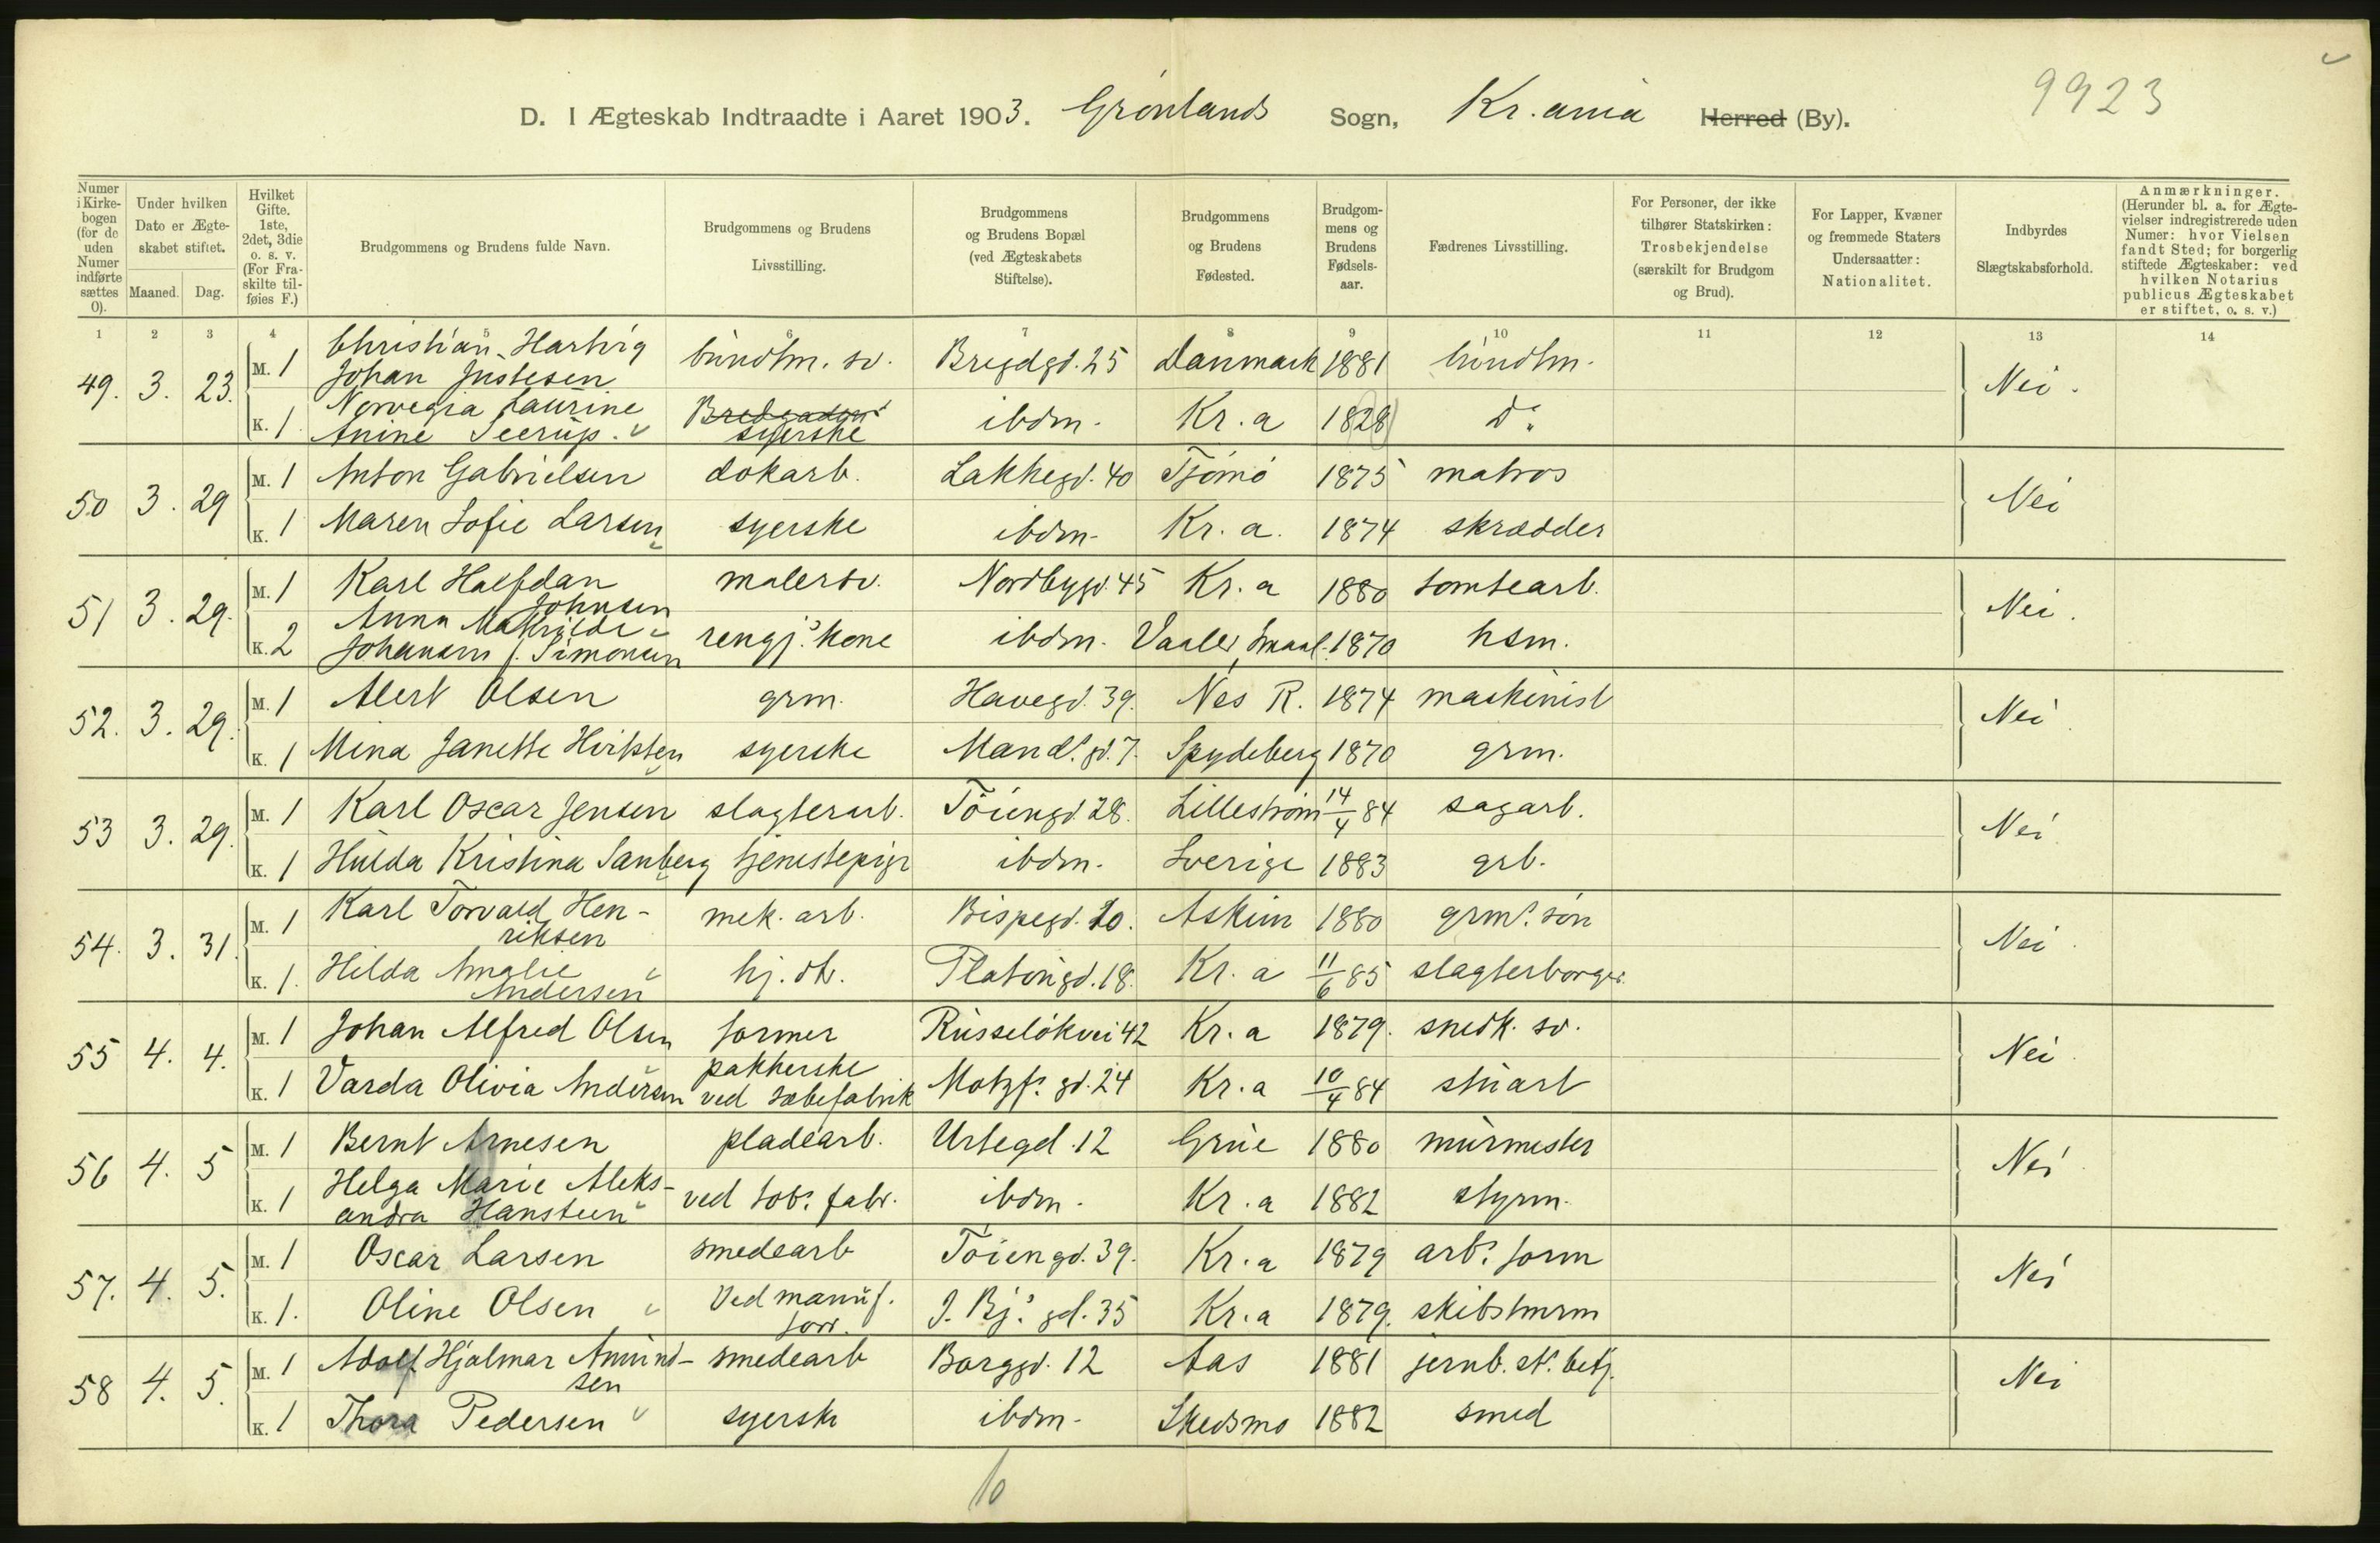 9923
D. I Ægteskab Indtraadte i Aaret 1903. Grønlands Sogn, Kr.ania Herred (By).
Numer i Kirkebogen (for de uden Numer indførte sættes 0).
Under hvilken Dato er Ægteskabet stiftet. Maaned. Dag.
Hvilket Gifte. 1ste, 2det, 3die o. s. v. (For Fraskilte tilføies F.)
Brudgommens og Brudens fulde Navn.
Brudgommens og Brudens Livsstilling.
Brudgommens og Brudens Bopæl (ved Ægteskabets Stiftelse).
Brudgommens og Brudens Fødested.
Brudgommens og Brudens Fødselsaar.
Fædrenes Livsstilling.
For Personer, der ikke tilhører Statskirken: Trosbekjendelse (særskilt for Brudgom og Brud).
For Lapper, Kvæner og fremmede Staters Undersaatter: Nationalitet.
Indbyrdes Slægtskabsforhold.
Anmærkninger. (Herunder bl. a. for Ægtevielser indregistrerede uden Numer: hvor Vielsen fandt Sted; for borgerlig stiftede Ægteskaber: ved hvilken Notarius publicus Ægteskabet er stiftet, o. s. v.)
1 2 3 4 5 6 7 8 9 10 11 12 13 14
49. 3. 23. M. 1 Christian Hartvig Johan Justesen bundtm. sv. Bredgd. 25 Danmark 1881 bundtm. Nei.
K. 1 Norvegia Laurine Anine Seerup. Bredgaden syerske ibdm. Kr.a 1828 do
50 3. 29 M. 1 Anton Gabrielsen dokarb. Lakkegd. 40 Tjømø 1875 matros Nei
K. 1 Maren Sofie Larsen syerske ibdm. Kr.a. 1874 skrædder
51 3. 29. M. 1 Karl Halfdan Johnsen malersv. Nordbygd. 45 Kr.a 1880 tomtearb. Nei.
K. 2 Anna Mathilde Johansen f. Simonsen rengj.kone ibdm. Vaaler, Smaal. 1870 hsm.
52. 3. 29. M. 1 Alert Olsen grm. Havegd. 39. Nes R. 1874 maskinist Nei
K. 1 Mina Janette Hvitsten syerske Mandls gd. 7. Spydeberg 1870 grm.
53 3. 29. M. 1 Karl Oscar Jensen slagterarb. Tøiengd. 28. Lillestrøm 14/4 84 sagarb. Nei
K. 1 Hulda Kristina Sanberg tjenestepige ibdm. Sverige 1883 grb.
54. 3. 31. M. 1 Karl Torvald Henriksen mek. arb. Bispegd. 20. Askim 1880 grms. søn Nei
K. 1. Hilda Amalie Andersen hj. dt. Platougd. 18. Kr.a 11/6 85 slagterborger
55 4. 4. M. 1 Johan Alfred Olsen former Russeløkvei 42 Kr.a 1879. snedk. sv. Nei
K. 1 Varda Olivia Andersen pakkerske ved sæbefabrik Motzfs. gd. 24 Kr.a 10/4 84 stuart
56 4. 5 M. 1 Bernt Arnesen pladearb. Urtegd. 12 Grue 1880 murmester Nei
K. 1 Helga Marie Aleksandra Hansteen ved tobs. fabr. ibdm. Kr.a 1882 styrm.
57. 4. 5. M. 1 Oscar Larsen smedearb Tøiengd. 39. Kr.a 1879 arbs. form Nei
K. 1. Oline Olsen Ved manuf. forr. J. Bj.s gd. 35 Kr.a 1879. skibstmrm
58 4. 5. M. 1 Adolf Hjalmar Amundsen smedearb Borggd. 12 Aas 1881 jernb. st. betj. Nei
K. 1 Thora Pedersen syerske ibdm. Skedsmo 1882 smed
10